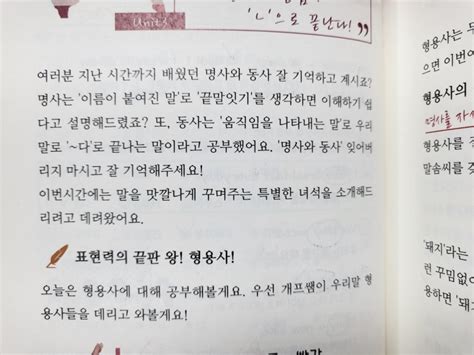 Unit3
'ㄴ'으로 끝난다!
여러분 지난 시간까지 배웠던 명사와 동사 잘 기억하고 계시죠?
명사는 '이름이 붙여진 말'로 '끝말잇기'를 생각하면 이해하기 쉽
다고 설명해드렸죠? 또, 동사는 '움직임을 나타내는 말'로 우리
말로 '~다'로 끝나는 말이라고 공부했어요. '명사와 동사' 잊어버
리지 마시고 잘 기억해주세요!
이번시간에는 말을 맛깔나게 꾸며주는 특별한 녀석을 소개해드
리려고 데려왔어요.
표현력의 끝판 왕! 형용사!
오늘은 형용사에 대해 공부해볼게요. 우선 개프쌤이 우리말 형
용사들을 데리고 와볼게요!
형용사는 두
으면 이번
형용사의
명사를
형용사를
말솜씨를
'돼지'라는
런 꾸밈없이
용하면 '돼